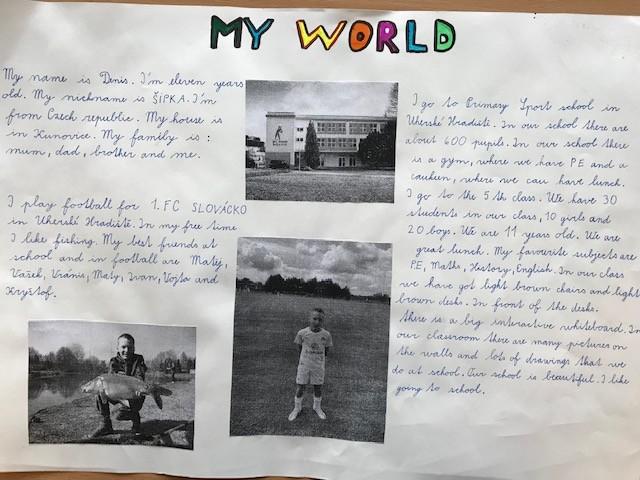 MY WORLD
My name is Denis. I'm eleven years
old. My nickname is ŠIPKA. I'm
from Czech republic. My house is
in Kunovice. My family is :
mum, dad, brother and me.
I play football for 1. FC SLOVÁCKO
in Uherské Hradiště. In my free time
I like fishing. My best friends at
school and in football are Matěj,
Vašek, Vránis, Maty, Ivan, Vojta and
Kryštof.
I go to Primary Sport school in
Uherské Hradiště. In our school there are
about 600 pupils. In our school there
is a gym, where we have PE and a
, where we can have lunch.
I go to the 5 th class. We have 30
students in our class, 10 girls and
20 boys. We are 11 years old. We are
great lunch. My favourite subjects are
PE, Maths, History, English. In our class
we have got light brown chairs and light
brown desks. In front of the desks.
there is a big interactive whiteboard. In
our classroom there are many pictures on
the walls and lots of drawings that we
do at school. Our school is beautiful. I like
going to school.